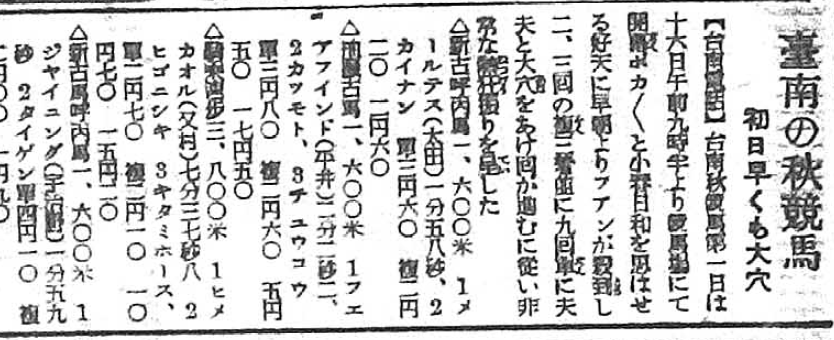 臺南の秋競馬
初日早くも大穴
【台南電話】台南秋競馬第一日は
十六日午前九時半より競馬場にて
開幕ポカ〱と小春日和を思はせ
る好天に早朝よりフアンが殺到し
二、三回の複三番曲に九回單に夫
夫と大穴をあけ回が進むに從い非
常な熱狂振りを呈した
△新古馬呼丙馬一、六〇〇米 1メ
ールテス(太田)一分五八秒、2
カイナン 單三円六〇 複二円
二〇 一円六〇
△洲產古馬一、六〇〇米 1フエ
アフインド(平井)二分二秒二、
2カツモト、3テユウコウ
單三円八〇 複二円六〇 五円
五〇 一七円五〇
△騎乘速步三、八〇〇米 1ヒメ
カオル(又村)七分三七秒八 2
ヒゴニシキ 3キタミホース、
單二円七〇 複二円一〇 一〇
円七〇 一五円二〇
△新古馬呼丙馬一、六〇〇米 1
ジヤイニング()一分五九
秒 2タイゲン單四円一〇 複